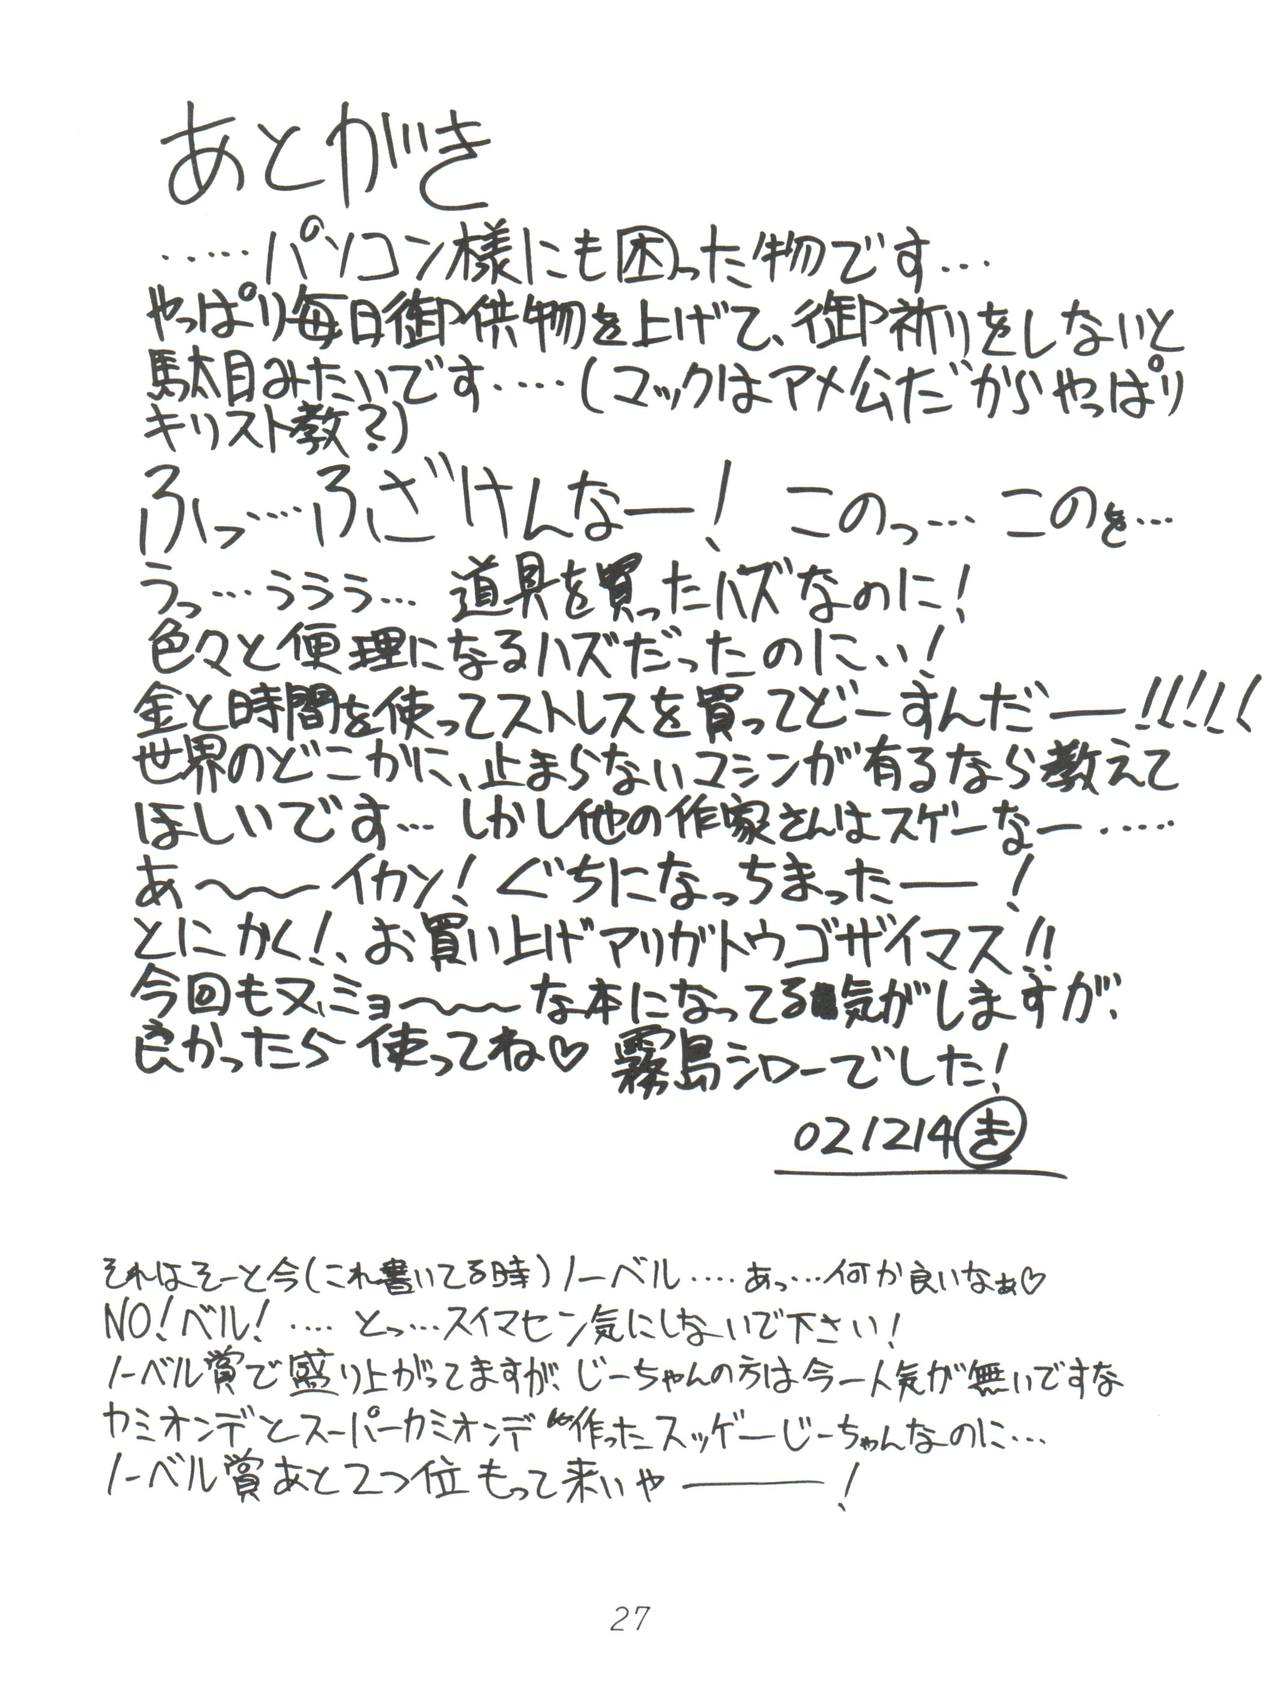 あとがき
‥‥‥パソコン様にも困った物です…
やっぱり毎日御供物を上げて、御祈りをしないと
駄目みたいです‥‥(マックはアメ公だからやっぱり
キリスト教?)
ふっ‥‥ふざけんなー! このっ… このぉ…
うっ…ぅううぅ… 道具を買ったハズなのに!
色々と便理になるハズだったのにぃ!
金と時間を使ってストレスを買ってどーすんだー!!!!!
世界のどこかに、止まらないマシンが有るなら教えて
ほしいです… しかし他の作家さんはスゲーなー‥‥‥
あ〜〜イカン! ぐちになっちまったー!
とにかく!、お買い上げアリガトウゴザイマス!!
今回も又、ミョ〜〜〜な本になってる気がしますが、
良かったら 使ってね♡ 霧島シローでした!
021214 き
それはそーと今(これ書いてる時)ノーベル‥‥あっ…何か良いなぁ♡
NO!ベル!‥‥ とっ…スイマセン気にしないで下さい!
ノーベル賞で盛り上がってますが、じーちゃんの方は今一人気が無いですな
カミオンデとスーパーカミオンデ作ったスッゲーじーちゃんなのに…
ノーベル賞あと2つ位もって来いやー!
27